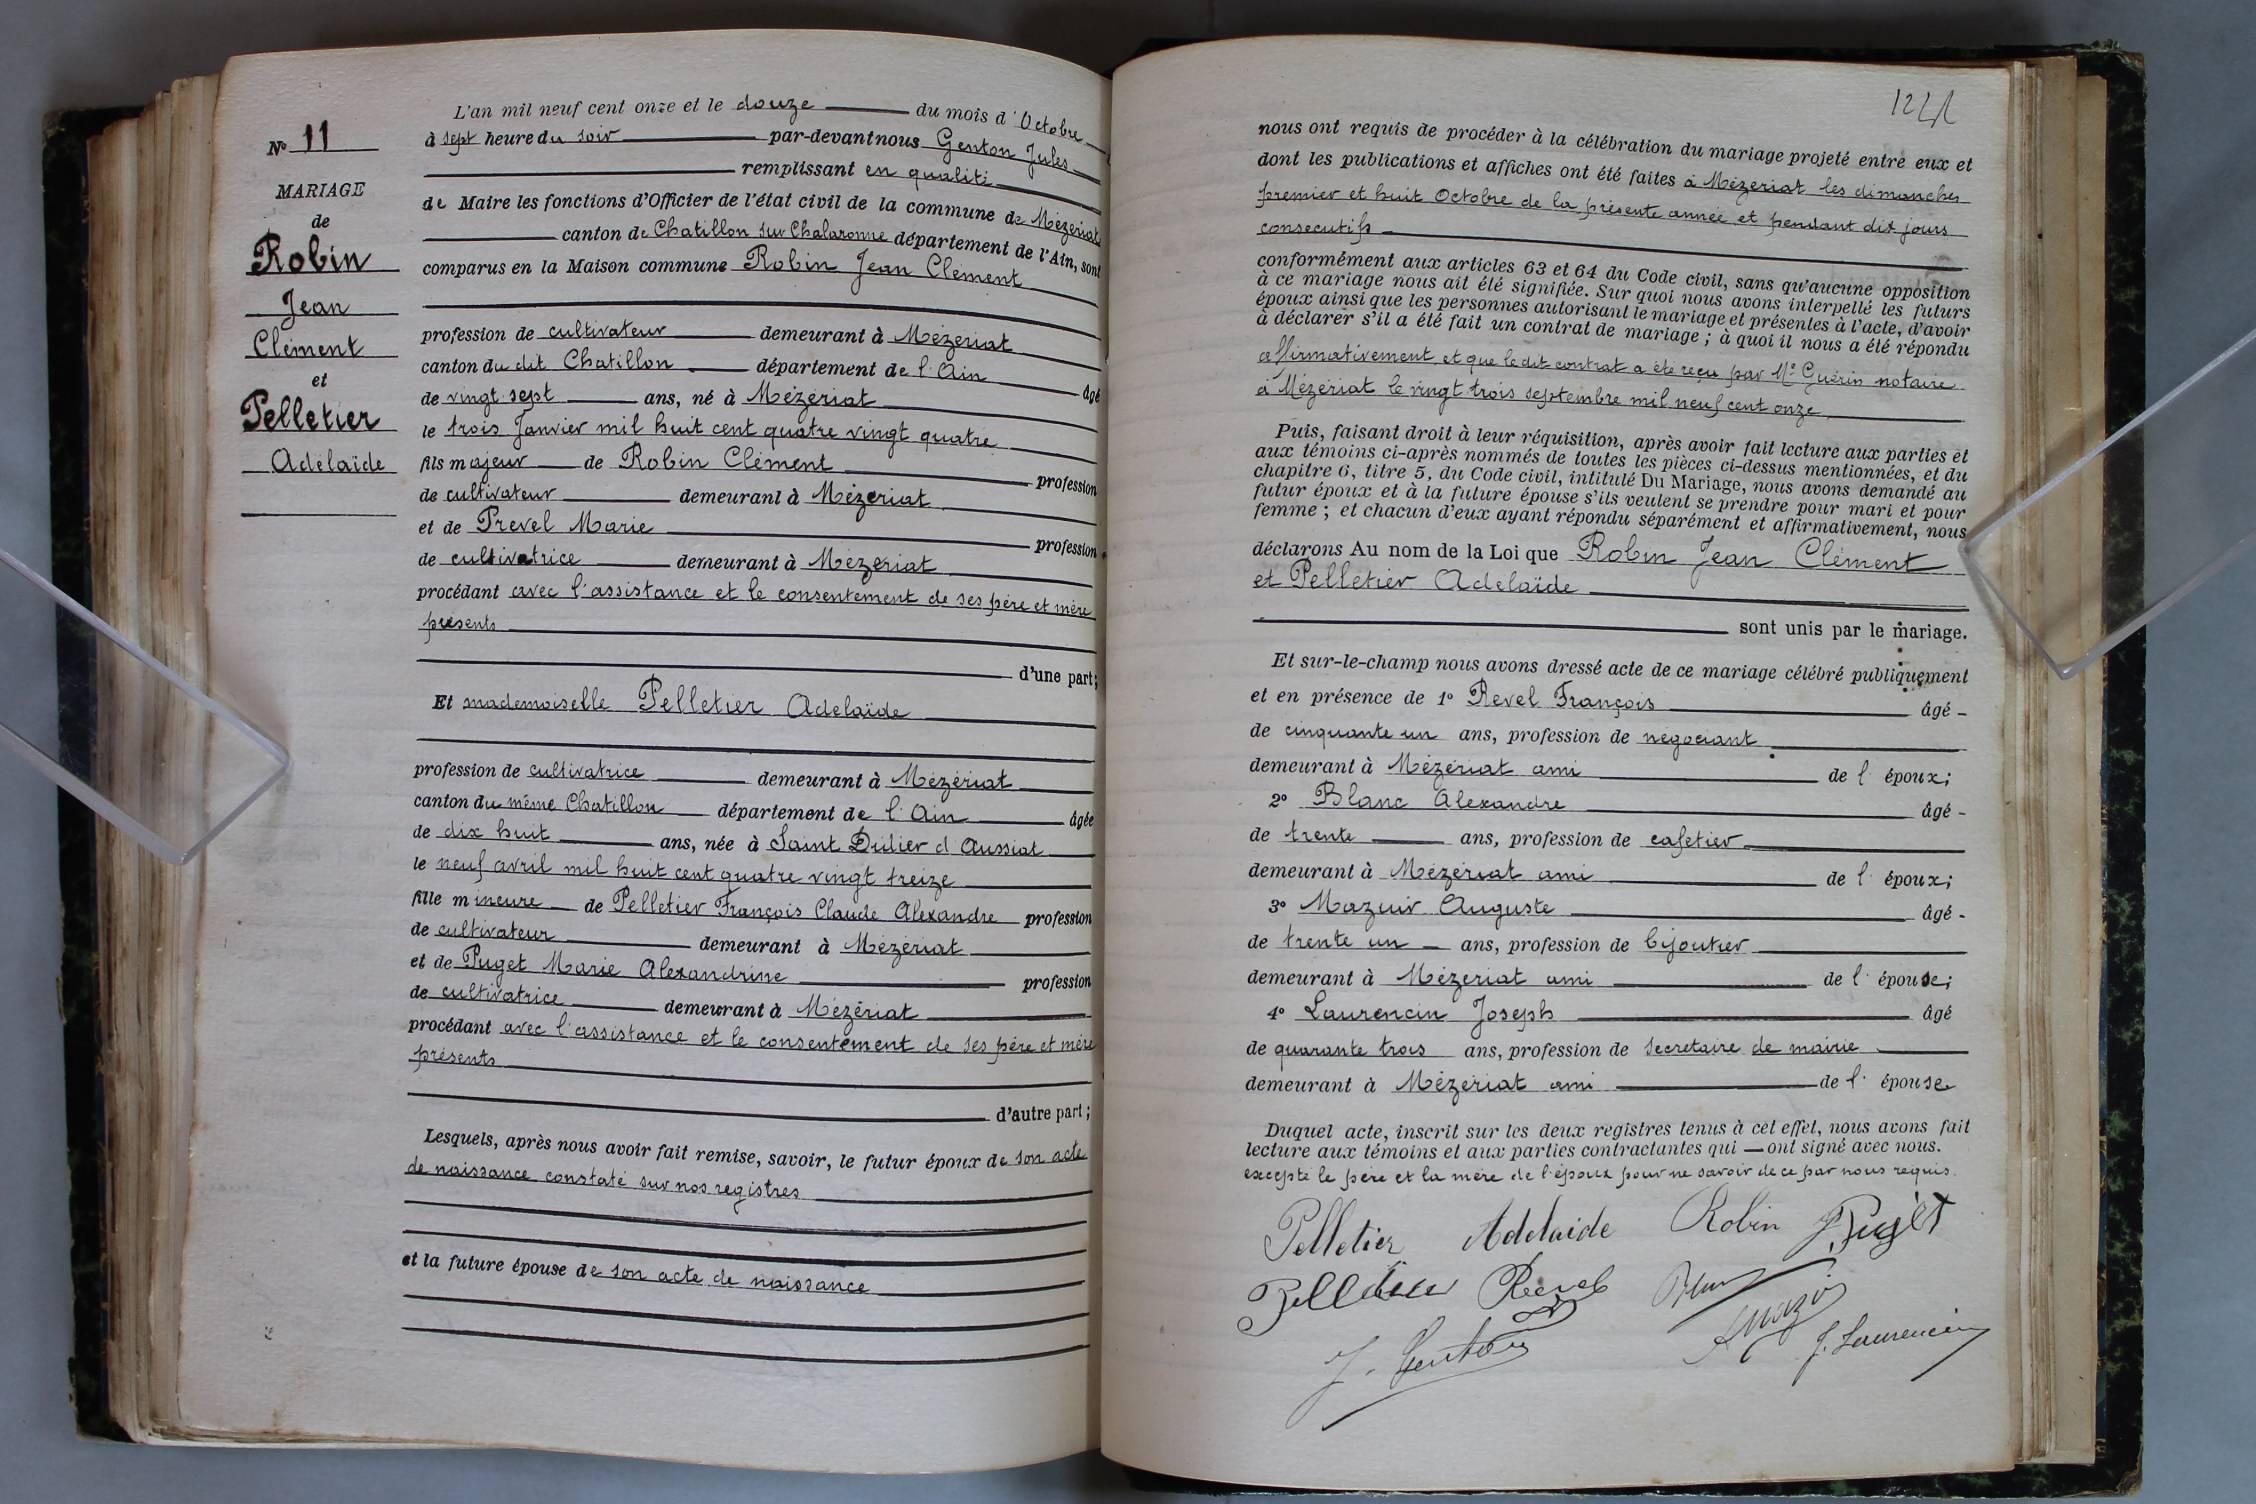 Nº 11
MARIAGE
de
Robin
Jean
Clément
et
Pelletier
Adelaïde
L'an mil neuf cent onze et le douze du mois d'Octobre
à sept heure du soir par-devant nous Genton Jules
remplissant en qualité
de Maire les fonctions d'Officier de l'état civil de la commune de Mézériat
canton de Chatillon sur Chalaronne département de l'Ain, sont
comparus en la Maison commune Robin Jean Clément
profession de cultivateur demeurant à Mézériat
canton du dit Chatillon département de l'Ain âgé
de vingt sept ans, né à Mézériat
le trois Janvier mil huit cent quatre vingt quatre
fils majeur de Robin Clément profession
de cultivateur demeurant à Mézériat
et de Prevel Marie profession
de cultivatrice demeurant à Mézériat
procédant avec l'assistance et le consentement de ses père et mère
présents
d'une part;
Et mademoiselle Pelletier Adelaïde
profession de cultivatrice demeurant à Mézériat
canton du même Chatillon département de l'Ain âgée
de dix huit ans, née à Saint Didier d'Aussiat
le neuf avril mil huit cent quatre vingt treize
fille mineure de Pelletier François Claude Alexandre profession
de cultivateur demeurant à Mézériat
et de Puget Marie Alexandrine profession
de cultivatrice demeurant à Mézériat
procédant avec l'assistance et le consentement de ses père et mère
présents
d'autre part;
Lesquels, après nous avoir fait remise, savoir, le futur époux de son acte
de naissance constaté sur nos registres
et la future épouse de son acte de naissance
nous ont requis de procéder à la célébration du mariage projeté entre eux et
dont les publications et affiches ont été faites à Mézériat les dimanches
premier et huit Octobre de la présente année et pendant dix jours
consecutifs
conformément aux articles 63 et 64 du Code civil, sans qu'aucune opposition
à ce mariage nous ait été signifiée. Sur quoi nous avons interpellé les futurs
époux ainsi que les personnes autorisant le mariage et présentes à l'acte, d'avoir
à déclarer s'il a été fait un contrat de mariage; à quoi il nous a été répondu
affirmativement et que le dit contrat a été reçu par Me Guérin notaire
à Mézériat le vingt trois septembre mil neuf cent onze
Puis, faisant droit à leur réquisition, après avoir fait lecture aux parties et
aux témoins ci-après nommés de toutes les pièces ci-dessus mentionnées, et du
chapitre 6, titre 5, du Code civil, intitulé Du Mariage, nous avons demandé au
futur époux et à la future épouse s'ils veulent se prendre pour mari et pour
femme; et chacun d'eux ayant répondu séparément et affirmativement, nous
déclarons Au nom de la Loi que Robin Jean Clément
et Pelletier Adelaïde
sont unis par le mariage.
Et sur-le-champ nous avons dressé acte de ce mariage célébré publiquement
et en présence de 1º Revel François âgé
de cinquante un ans, profession de négociant
demeurant à Mézériat ami de l'époux;
2º Blanc Alexandre âgé
de trente ans, profession de cafetier
demeurant à Mézériat ami de l'époux;
3º Mazuir Auguste âgé
de trente un ans, profession de bijoutier
demeurant à Mézériat ami de l'épouse;
4º Laurencin Joseph âgé
de quarante trois ans, profession de secretaire de mairie
demeurant à Mézériat ami de l'épouse
Duquel acte, inscrit sur les deux registres tenus à cet effet, nous avons fait
lecture aux témoins et aux parties contractantes qui — ont signé avec nous.
excepté le père et la mère de l'époux pour ne savoir de ce par nous requis.
Pelletier Adelaide Robin Puget
Pelletier Revel
J. Genton J. Laurencin